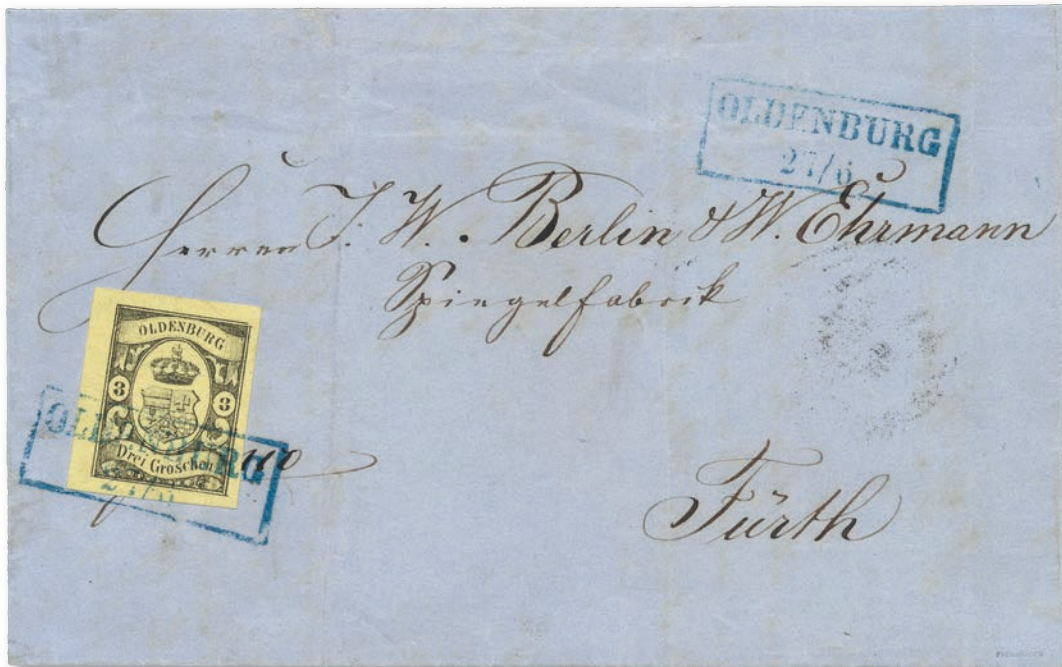 OLDENBURG
27/6
Herren J. W. Berlin & W. Ehrmann
Spiegelfabrik
OLDENBURG
3 3
Drei Groschen
OLDENBURG
27/6
Fürth